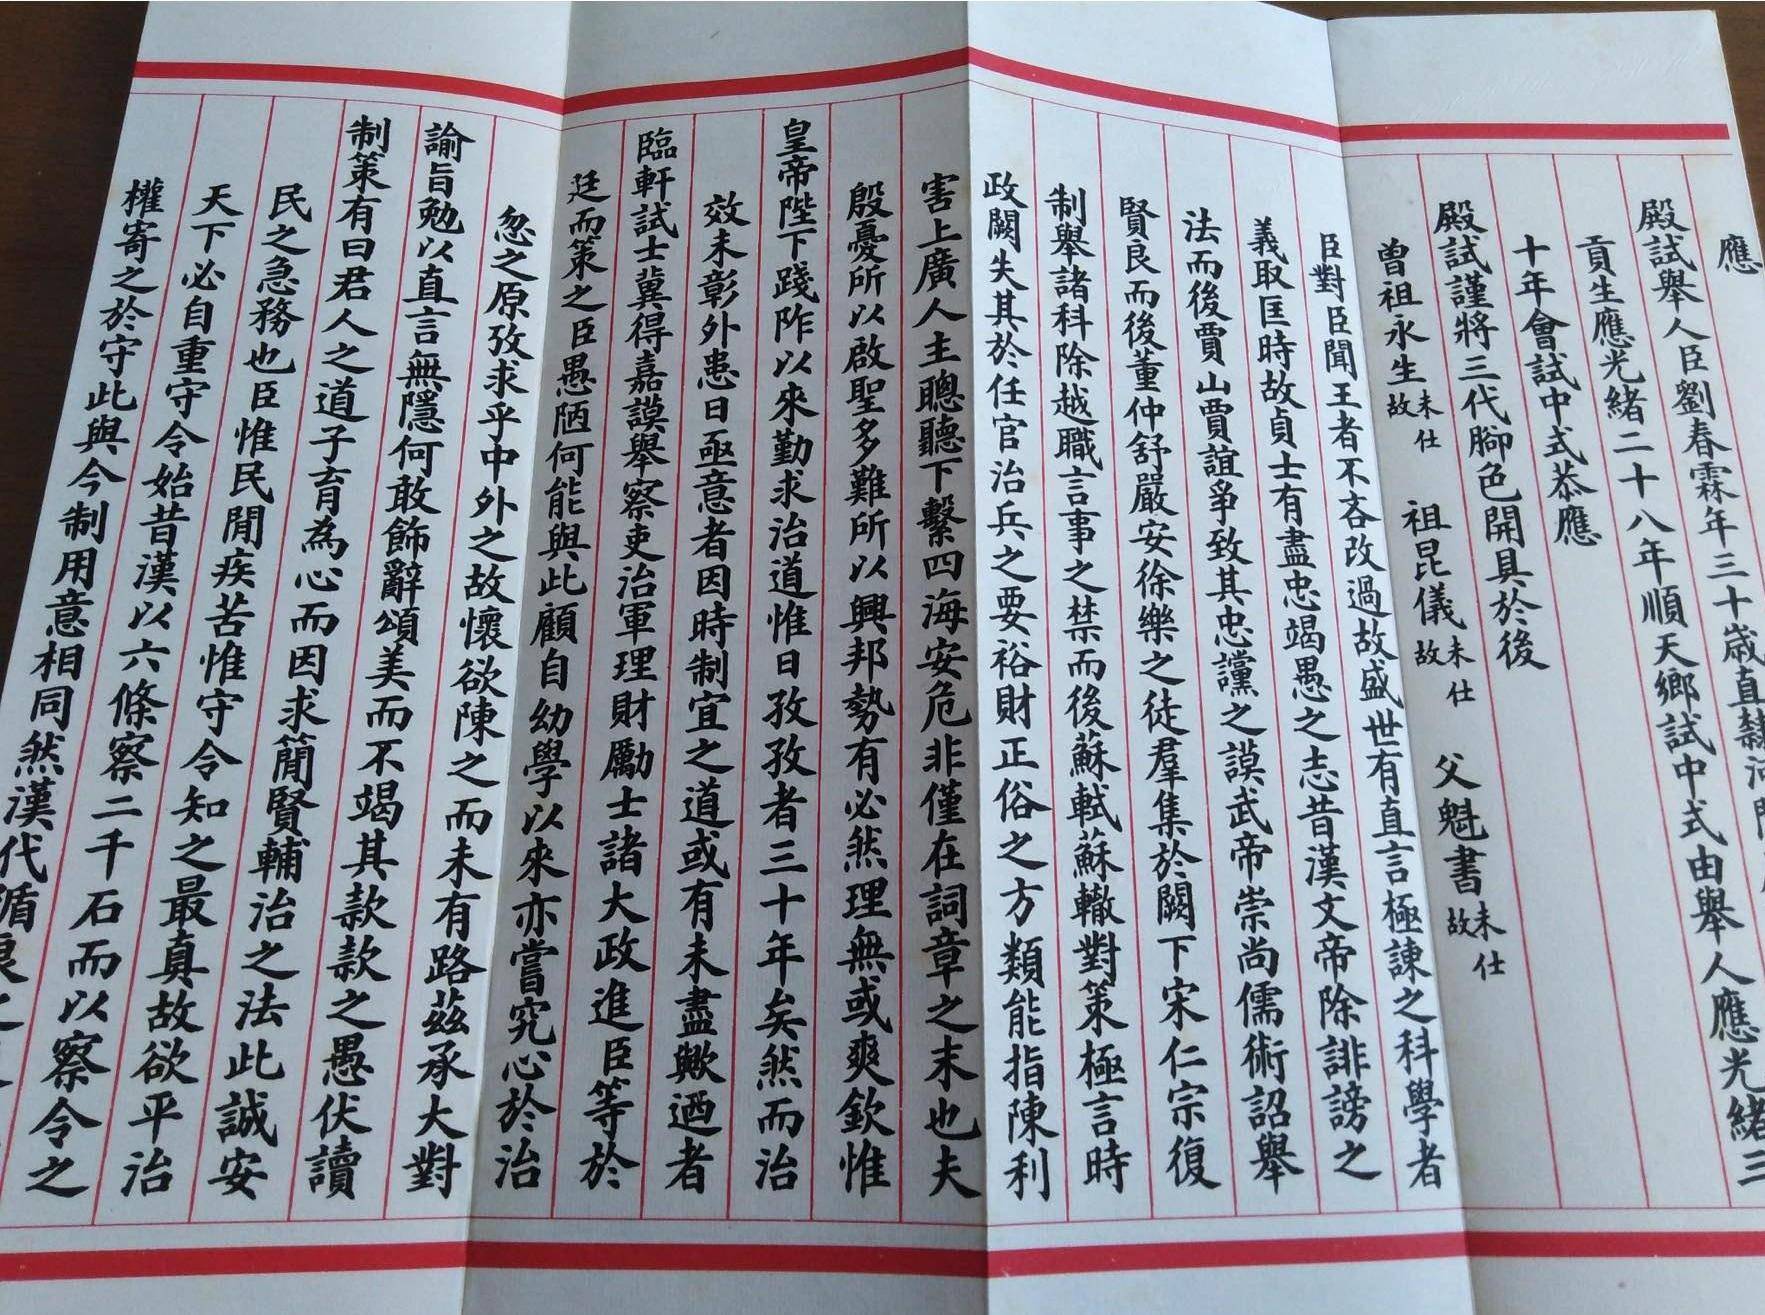 應
殿試舉人臣劉春霖年三十歲直隸河
貢生應光緒二十八年順天鄉試中式由舉人應光緒三
十年會試中式恭應
殿試謹將三代腳色開具於後
曾祖永生未仕故 祖昆儀未仕故 父魁書未仕故
臣對臣聞王者不吝改過故盛世有直言極諫之科學者
義取匡時故貞士有盡忠竭愚之志昔漢文帝除誹謗之
法而後賈山賈誼爭致其忠讜之謨武帝崇尚儒術詔舉
賢良而後董仲舒嚴安徐樂之徒羣集於闕下宋仁宗復
制舉諸科除越職言事之禁而後蘇軾蘇轍對策極言時
政闕失其於任官治兵之要裕財正俗之方類能指陳利
害上廣人主聰聽下繫四海安危非僅在詞章之末也夫
殷憂所以啟聖多難所以興邦勢有必然理無或爽欽惟
皇帝陛下踐阼以來勤求治道惟日孜孜者三十年矣然而治
效未彰外患日亟意者因時制宜之道或有未盡歟迺者
臨軒試士冀得嘉謨舉察吏治軍理財勵士諸大政進臣等於
廷而策之臣愚陋何能與此顧自幼學以來亦嘗究心於治
忽之原攷求乎中外之故懷欲陳之而未有路茲承大對
諭旨勉以直言無隱何敢飾辭頌美而不竭其款款之愚伏讀
制策有曰君人之道子育為心而因求簡賢輔治之法此誠安
民之急務也臣惟民閒疾苦惟守令知之最真故欲平治
天下必自重守令始昔漢以六條察二千石而以察令之
權寄之於守此與今制用意相同然漢代循良之